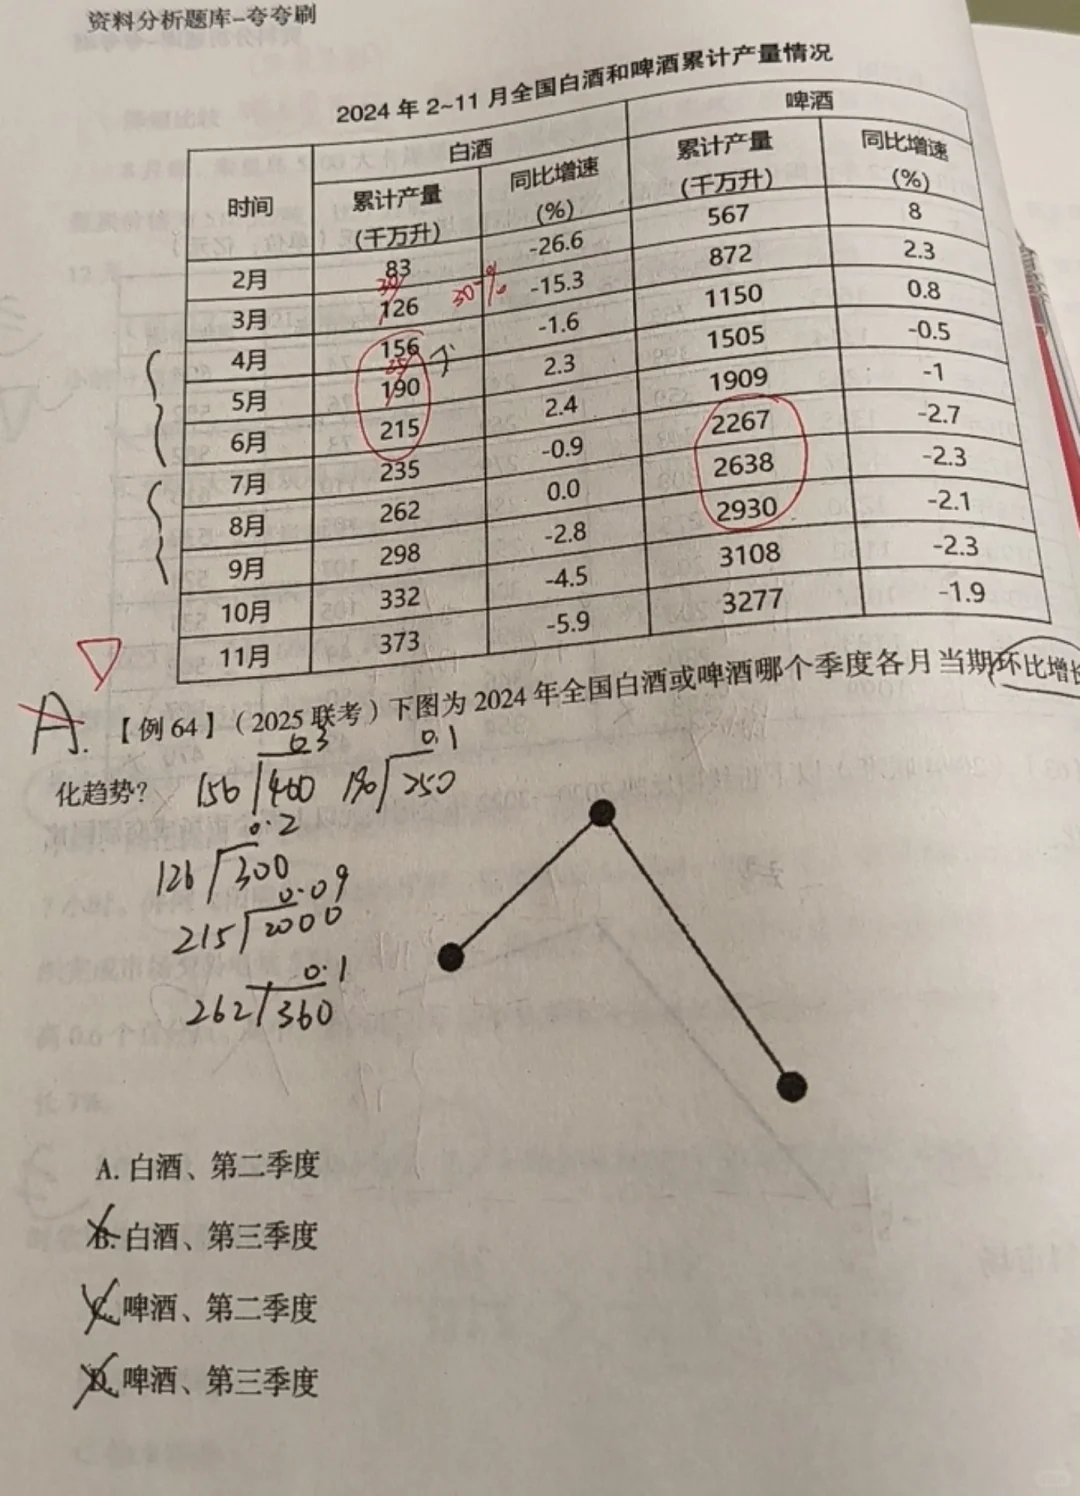 资料分析题库-夸夸刷
2024年2~11月全国白酒和啤酒累计产量情况
时间 白酒 啤酒
累计产量(千万升) 同比增速(%) 累计产量(千万升) 同比增速(%)
2月 83 -26.6 567 8
3月 126 -15.3 872 2.3
4月 156 -1.6 1150 0.8
5月 190 2.3 1505 -0.5
6月 215 2.4 1909 -1
7月 235 -0.9 2267 -2.7
8月 262 0.0 2638 -2.3
9月 298 -2.8 2930 -2.1
10月 332 -4.5 3108 -2.3
11月 373 -5.9 3277 -1.9
30%
A.
【例64】(2025联考)下图为2024年全国白酒或啤酒哪个季度各月当期环比增长
化趋势?
0.3 0.1
156 460 190 250
0.2
126 300
0.09
215 2000
0.1
262 360
A. 白酒、第二季度
B. 白酒、第三季度
C. 啤酒、第二季度
D. 啤酒、第三季度